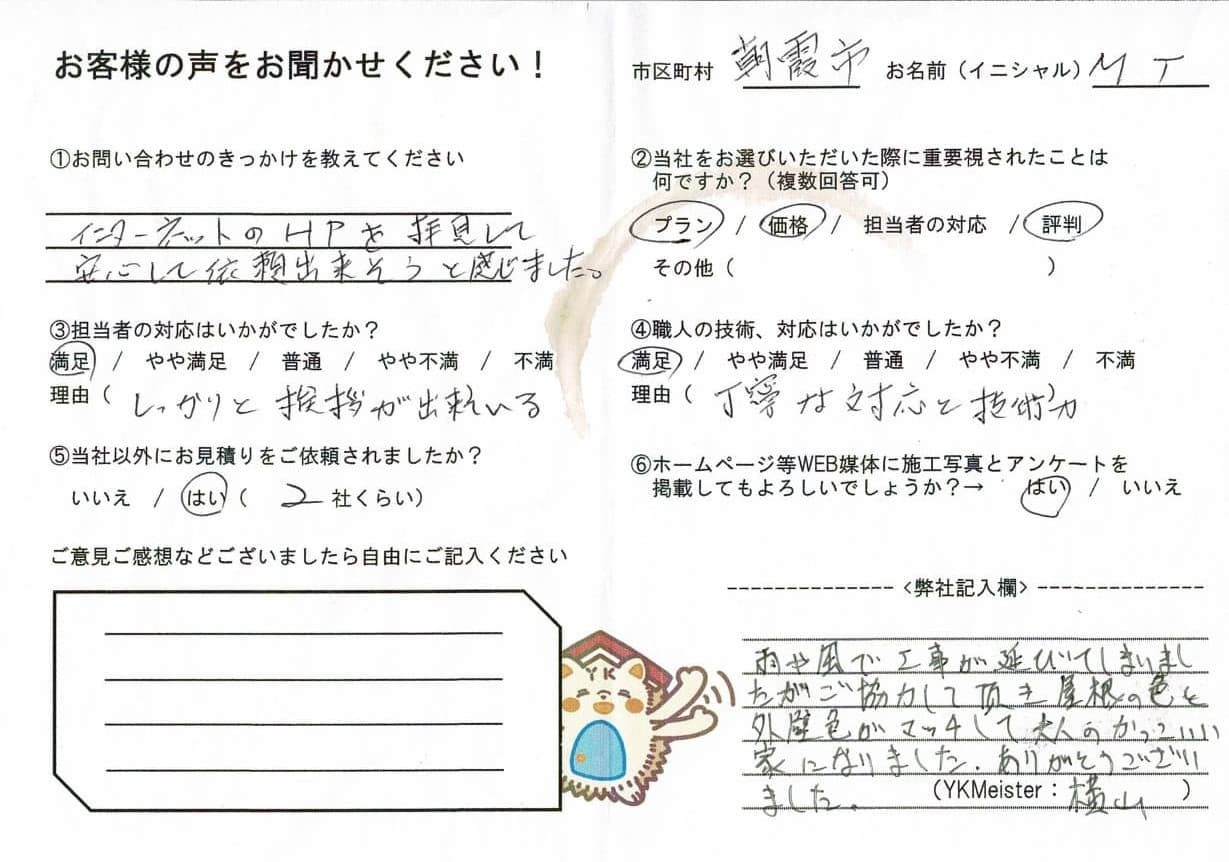 お客様の声をお聞かせください！
市区町村 朝霞市 お名前（イニシャル） M T
①お問い合わせのきっかけを教えてください
インターネットのHPを拝見して
安心して依頼出来そうと感じました。
②当社をお選びいただいた際に重要視されたことは
何ですか？（複数回答可）
プラン / 価格 / 担当者の対応 / 評判
その他（ ）
③担当者の対応はいかがでしたか？
満足 / やや満足 / 普通 / やや不満 / 不満
理由（ しっかりと挨拶が出来ている
④職人の技術、対応はいかがでしたか？
満足 / やや満足 / 普通 / やや不満 / 不満
理由（ 丁寧な対応と技術力
⑤当社以外にお見積りをご依頼されましたか？
いいえ / はい（ 2 社くらい）
⑥ホームページ等WEB媒体に施工写真とアンケートを
掲載してもよろしいでしょうか？→ はい / いいえ
ご意見ご感想などございましたら自由にご記入ください
YK
<弊社記入欄>
雨や風で工事が延びてしまいまし
たがご協力して頂き屋根の色と
外壁色がマッチして大人のかっこいい
家になりました。ありがとうござい
ました。 （YKMeister：横山 ）